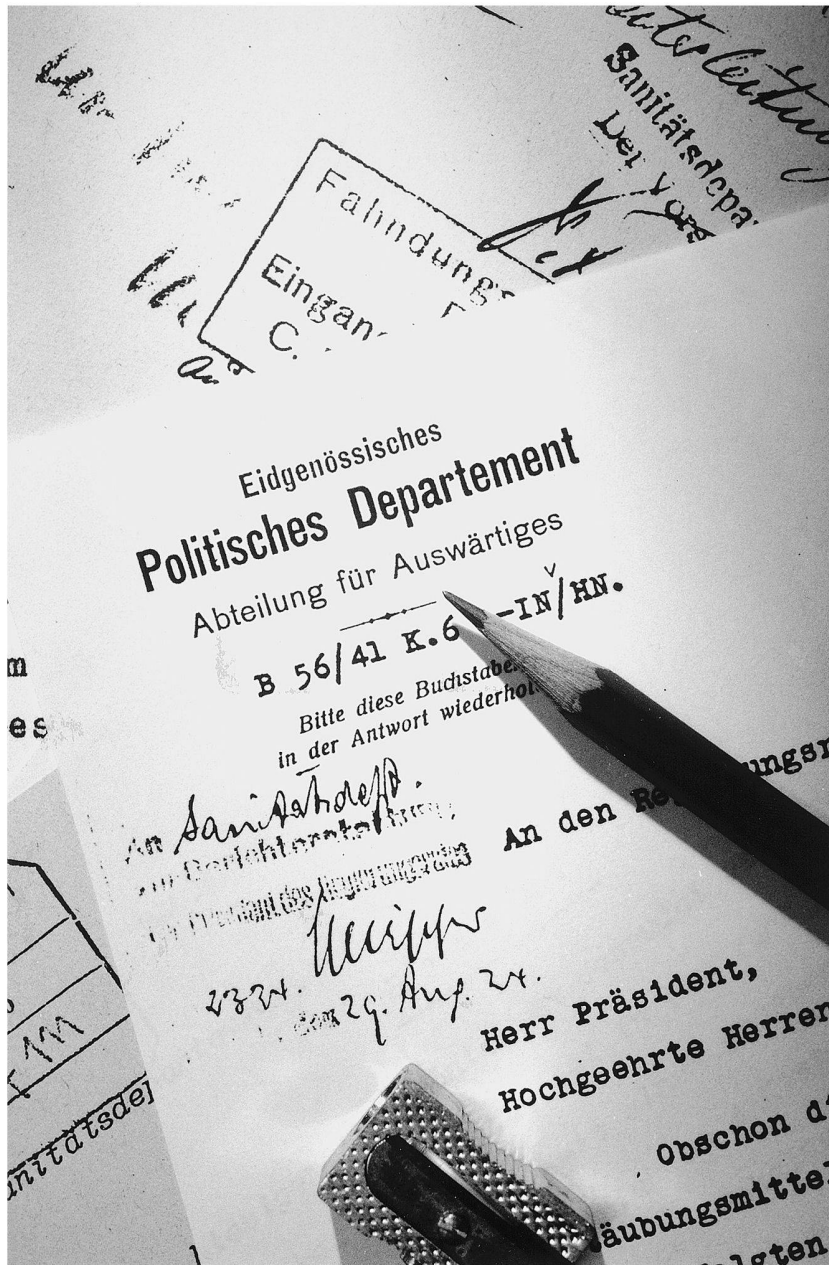 Sanitätsdepa
Fahndungs
Eingan
C.
Eidgenössisches
Politisches Departement
Abteilung für Auswärtiges
B 56/41 K.6 -IN/HN.
Bitte diese Buchstabe
in der Antwort wiederhol
m
es
An Sanitätsdept.
zur Berichterstattung
Der Präsident des Regierungsrates
2324.
den 29. Aug. 24.
An den Re ungsr
Herr Präsident,
Hochgeehrte Herren
Obschon di
äubungsmittel
olgten
anitätsdep